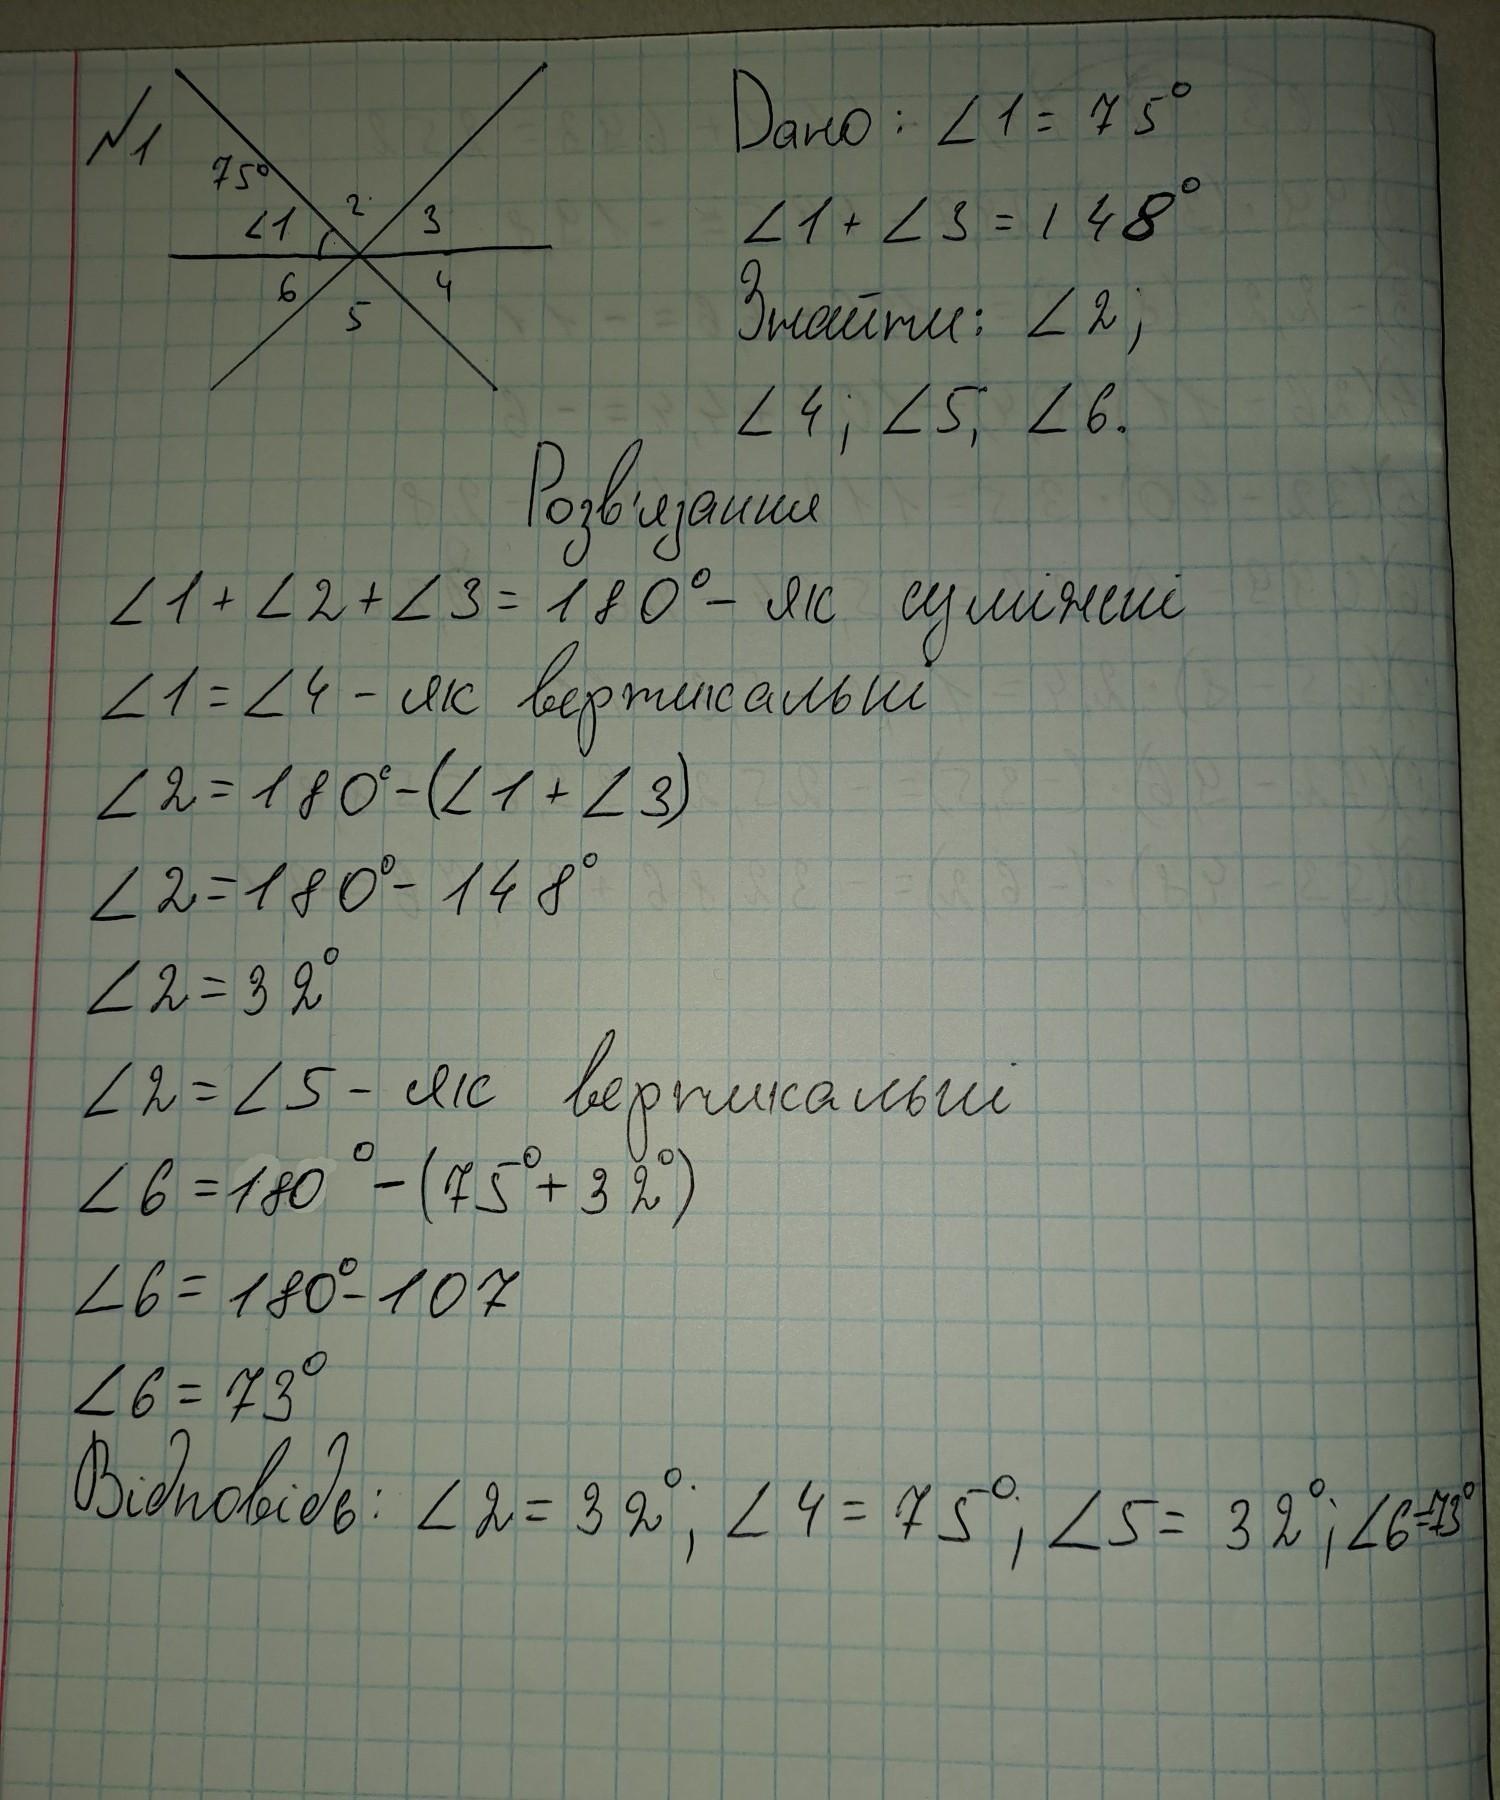 №1
75°
∠1
2
3
6
5
4
Дано: ∠1 = 75°
∠1 + ∠3 = 148°
Знайти: ∠2;
∠4; ∠5; ∠6.
Розв'язання
∠1 + ∠2 + ∠3 = 180° - як суміжні
∠1 = ∠4 - як вертикальні
∠2 = 180° - (∠1 + ∠3)
∠2 = 180° - 148°
∠2 = 32°
∠2 = ∠5 - як вертикальні
∠6 = 180° - (75° + 32°)
∠6 = 180° - 107
∠6 = 73°
Відповідь: ∠2 = 32°; ∠4 = 75°; ∠5 = 32°; ∠6 = 73°